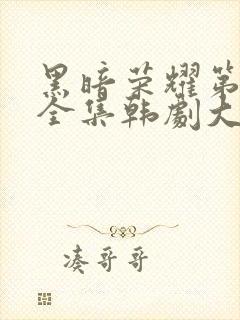 黑暗荣耀第
全集韩劇大
凑哥哥